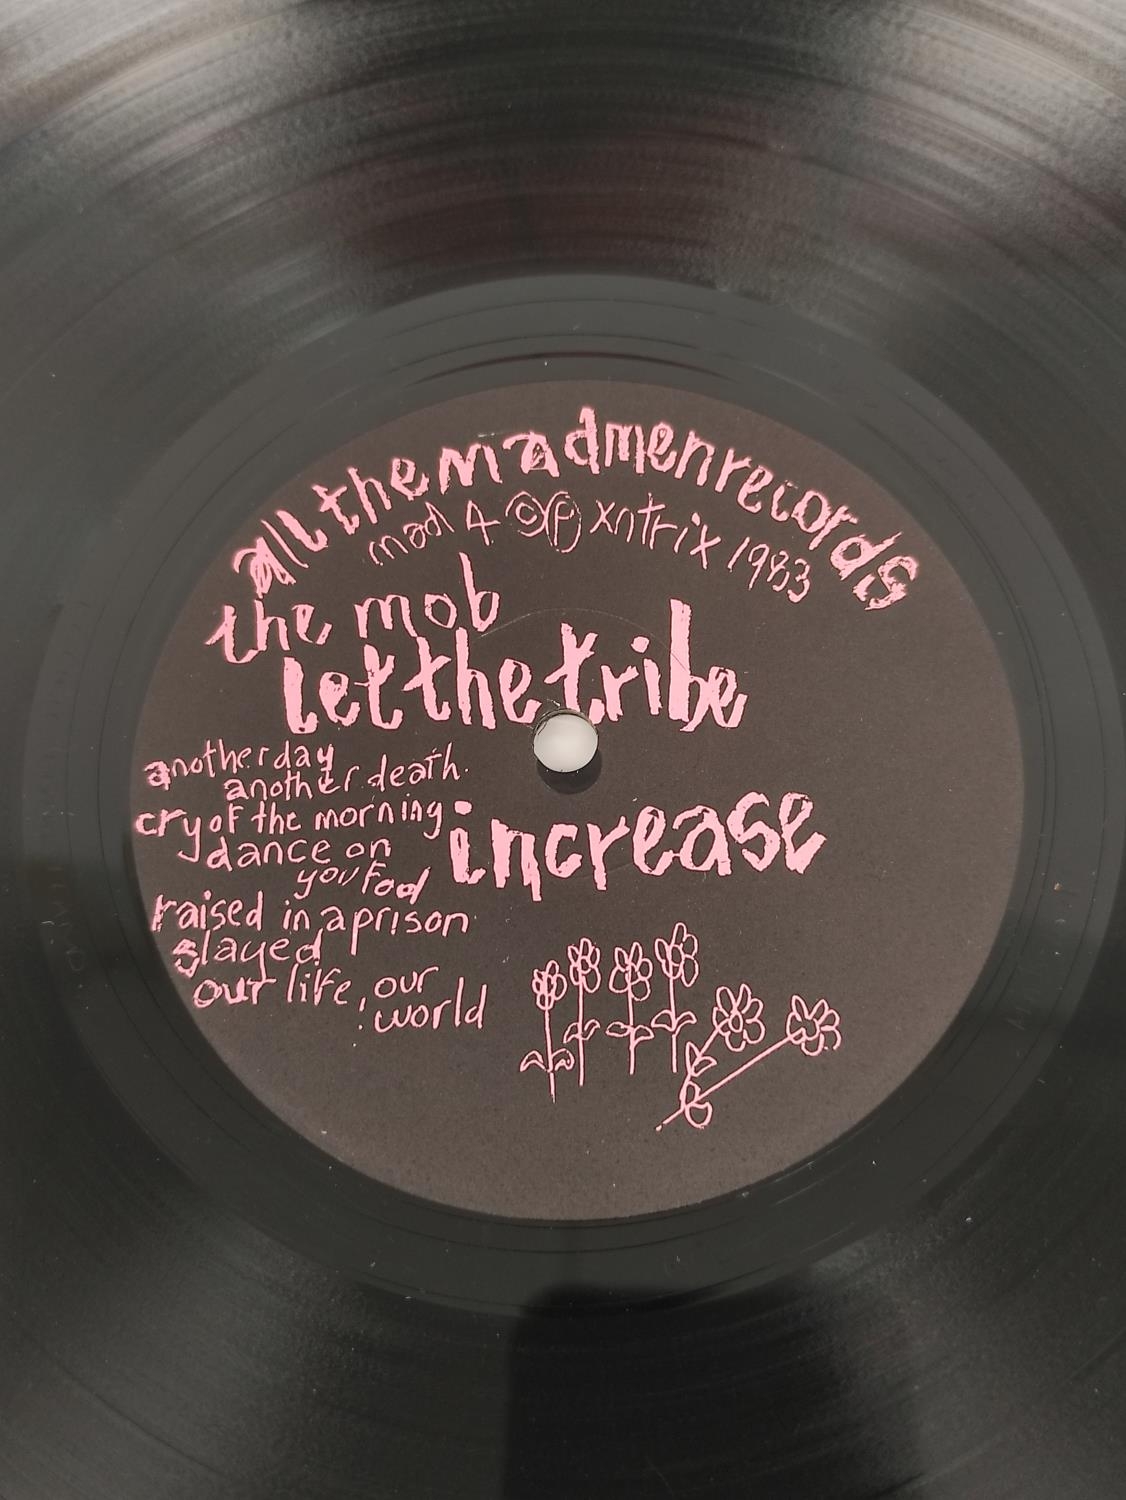 all the madmen records
mad 4 © ℗ xntrix 1983
the mob
let the tribe
increase
another day
another death.
cry of the morning
dance on
you fool
raised in a prison
slayed
our life, our
world